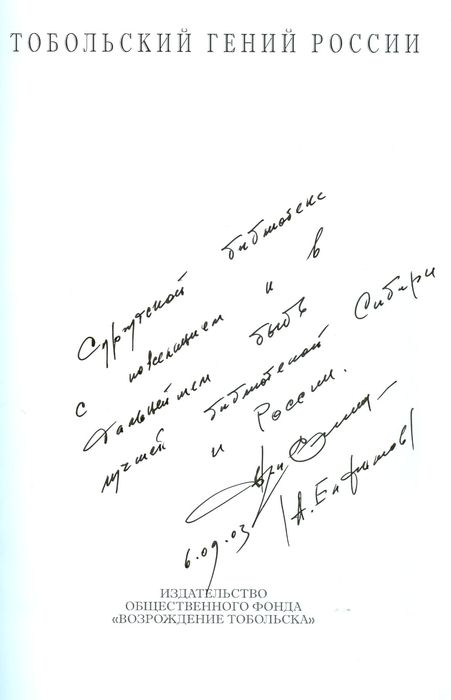 ТОБОЛЬСКИЙ ГЕНИЙ РОССИИ
Сургутской библиотеке
с пожеланием и в
дальнейшем быть
лучшей библиотекой Сибири
и России.
6.09.03
/А. Елфимов/
ИЗДАТЕЛЬСТВО
ОБЩЕСТВЕННОГО ФОНДА
«ВОЗРОЖДЕНИЕ ТОБОЛЬСКА»